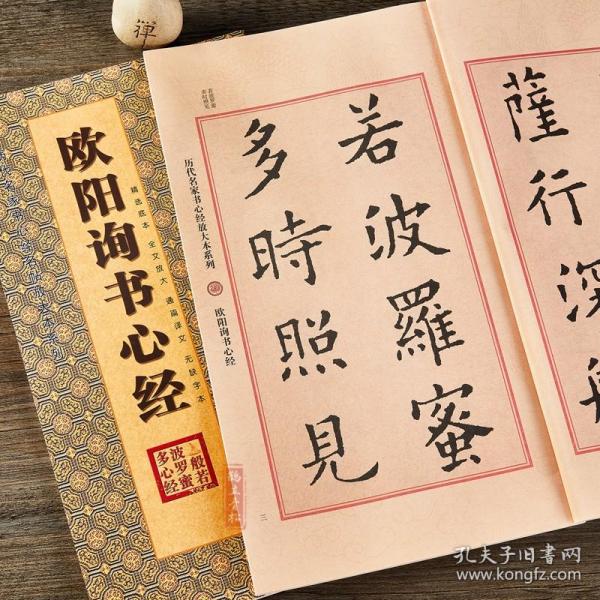 禅
欧阳询书心经
精选底本 全文放大 通篇译文 无缺字本
般若
波罗蜜
多心经
薩行深般
若波羅蜜
多時照見
若波罗蜜
多时照见
历代名家书心经放大本系列
欧阳询书心经
三
孔夫子旧书网
www.kongfz.com